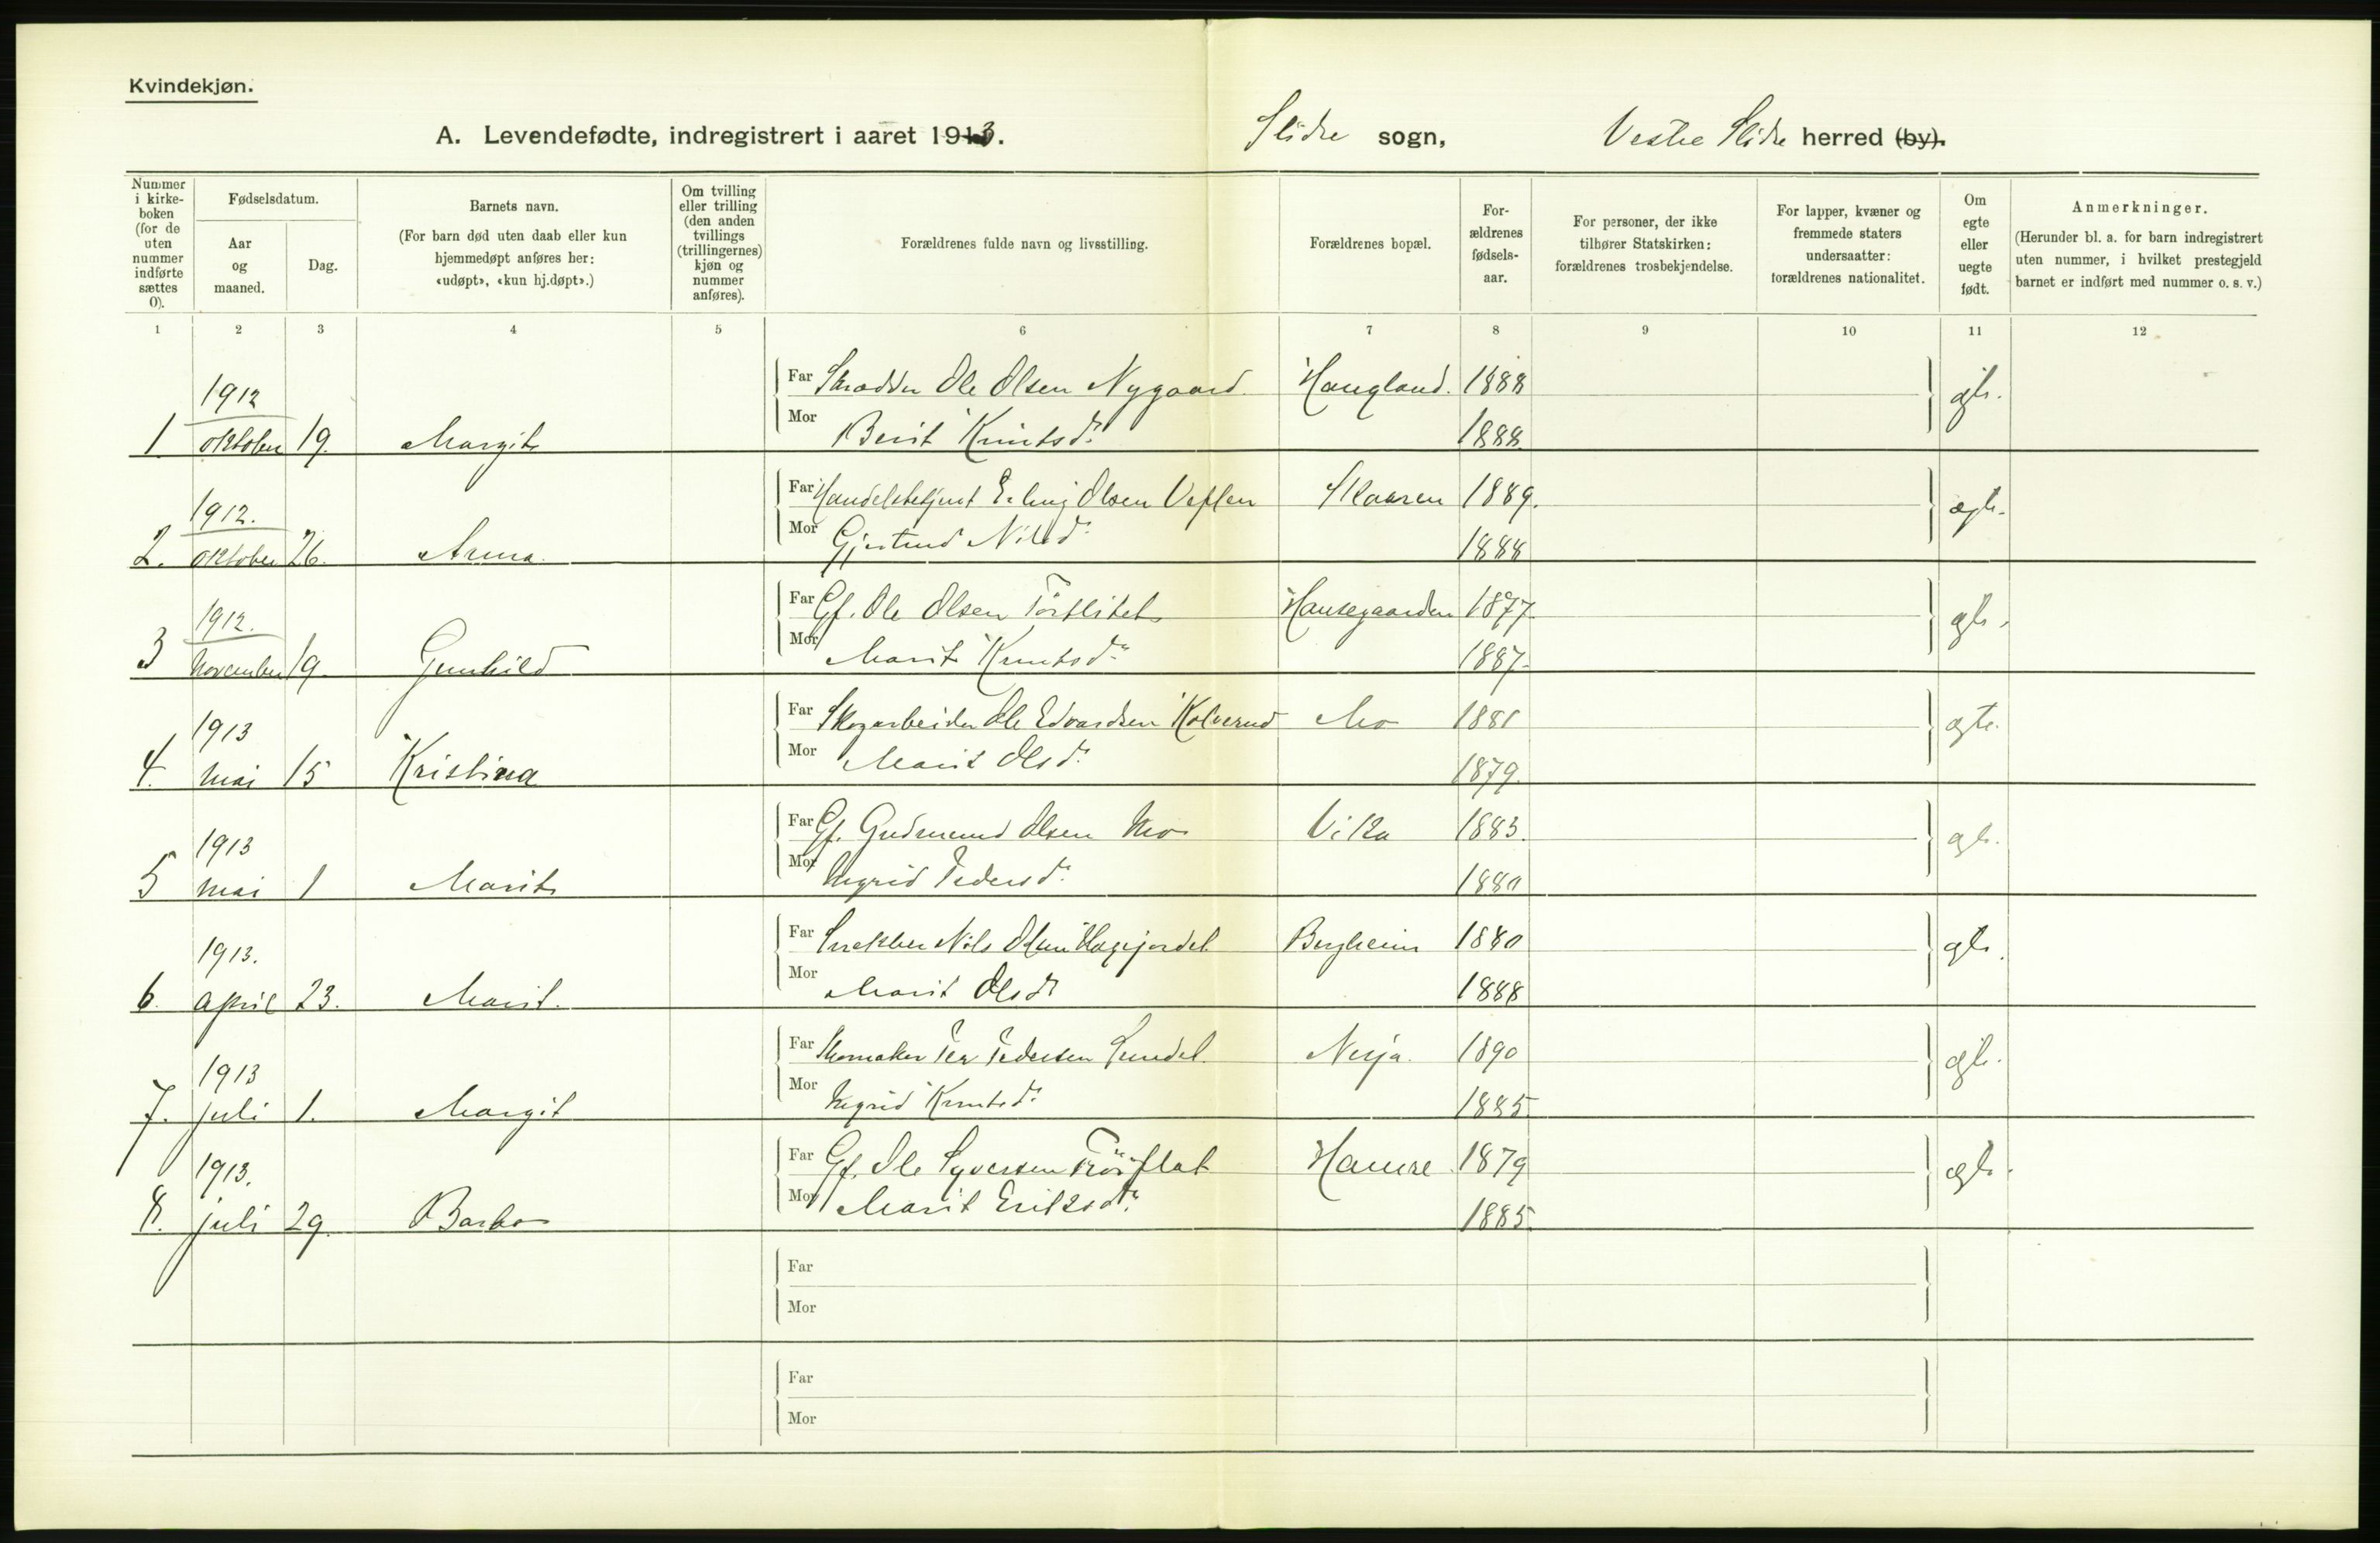 Kvindekjøn.
A. Levendefødte, indregistrert i aaret 1913. Slidre sogn, Vestre Slidre herred (by).
Nummer i kirke-boken (for de uten nummer indførte sættes 0).
Fødselsdatum.
Aar og maaned.
Dag.
Barnets navn.
(For barn død uten daab eller kun hjemmedøpt anføres her: «udøpt», «kun hj.døpt».)
Om tvilling eller trilling (den anden tvillings (trillingernes) kjøn og nummer anføres).
Forældrenes fulde navn og livsstilling.
Forældrenes bopæl.
For-ældrenes fødsels-aar.
For personer, der ikke tilhører Statskirken: forældrenes trosbekjendelse.
For lapper, kvæner og fremmede staters undersaatter: forældrenes nationalitet.
Om egte eller uegte født.
Anmerkninger.
(Herunder bl. a. for barn indregistrert uten nummer, i hvilket prestegjeld barnet er indført med nummer o. s. v.)
1 2 3 4 5 6 7 8 9 10 11 12
1912 Far Skrædder Ole Olsen Nygaard Haugland. 1888 egte.
1 oktober 19. Margit Mor Berit Knutsdr. 1888.
1912. Far Handelsbetjent Erling Olsen Veflen Skaaren 1889. egte.
2. oktober 26. Anna. Mor Gjertrud Nilsdr. 1888
1912. Far Gf. Ole Olsen Hausegaarden 1877. egte.
3 November 19. Gunhild Mor Marit Knutsdr. 1887.
1913 Far Skogarbeider Ole Edvardsen Kolverud Mo 1881 egte.
4. Mai 15 Kristina Mor Marit Olsdr. 1879.
1913 Far Gf. Gudmund Olsen Mo Vika 1883. egte.
5 Mai 1 Marit Mor Ingrid Pedersdr. 1880
1913. Far Snekker Nils Olsen Hagejordet Bergheim 1880 egte.
6. april 23. Marit. Mor Marit Olsdr. 1888
1913 Far Skomaker Per Pedersen Nesja. 1890 egte.
7. juli 1. Margit Mor Ingrid Knutsdr. 1885
1913. Far Gf. Ole Syversen Hamre 1879 egte.
8. juli 29. Barbo Mor Marit Eriksdr. 1885.
Far
Mor
Far
Mor